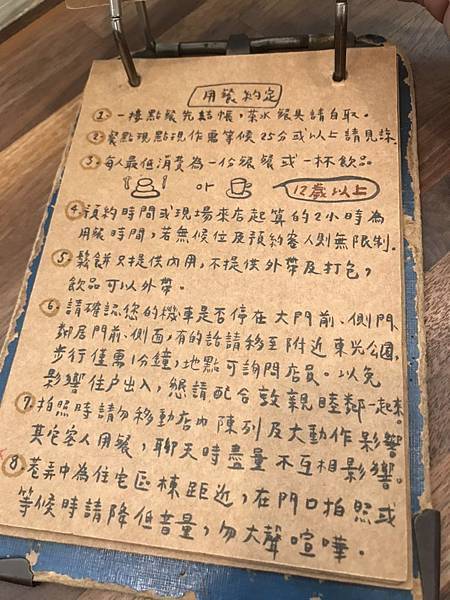 用餐約定
1. 一樓點餐先結帳，茶水餐具請自取。
2. 餐點現點現作需等候25分或以上請見諒.
3. 每人最低消費為一份鬆餅或一杯飲品
or 12歲以上
4. 預約時間或現場來店起算的2小時為
用餐時間，若無候位及預約客人則無限制.
5. 鬆餅只提供內用，不提供外帶及打包，
飲品可以外帶.
6. 請確認您的機車是否停在大門前、側門
鄰居門前、側面，有的話請移至附近東光公園，
步行僅需1分鐘，地點可詢問店員。以免
影響住户出入，懇請配合敦親睦鄰一起來.
7. 拍照時請勿移動店內陳列及大動作影響
其它客人用餐，聊天時盡量不互相影響。
8. 巷弄中為住宅區棟距近，在門口拍照或
等候時請降低音量，勿大聲喧嘩.